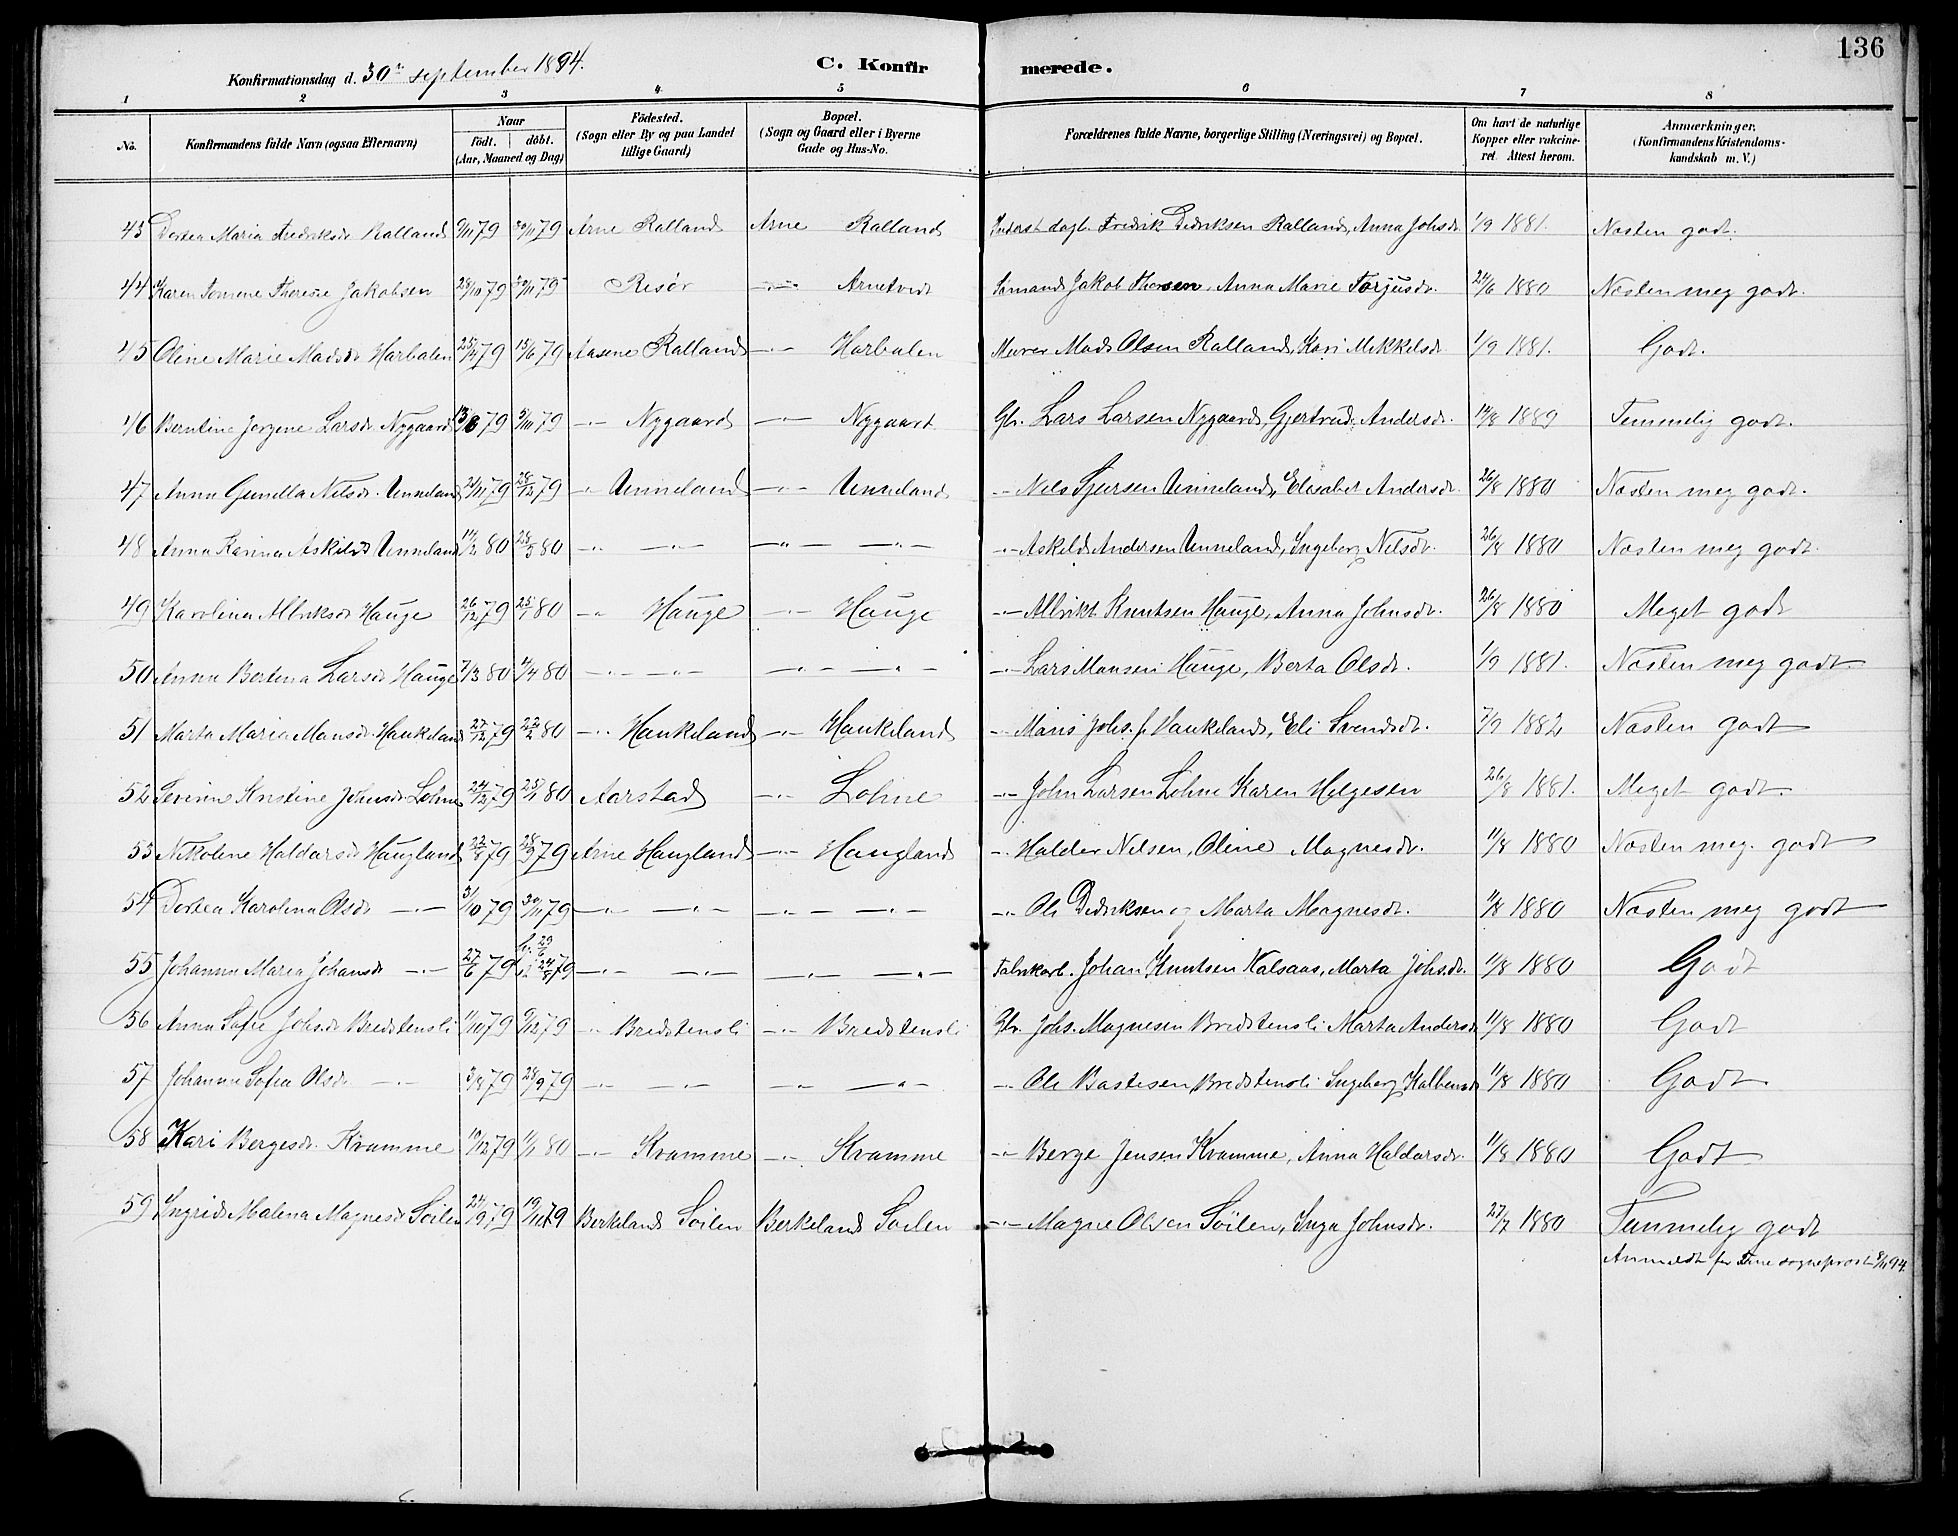 136
Konfirmationsdag d. 30te september 1894.
C. Konfirmerede.
1 2 3 4 5 6 7 8
No.
Konfirmandens fulde Navn (ogsaa Efternavn)
Naar
födt. döbt.
(Aar, Maaned og Dag)
Födested.
(Sogn eller By og paa Landet
tillige Gaard)
Bopæl.
(Sogn og Gaard eller i Byerne
Gade og Hus-No.
Forældrenes fulde Navne, borgerlige Stilling (Næringsvei) og Bopæl.
Om havt de naturlige
Kopper eller vakcine-
ret. Attest herom.
Anmærkninger.
(Konfirmandens Kristendoms-
kundskab m. V.)
43 Dortea Maria Fredriksdr Ralland 9/11 79 30/11 79 Arne Ralland Arne Ralland Fredrik Dedriksen Ralland, Anna Johsdr. 1/9 1881. Næsten godt.
44 Karen Tomene Theresie Jakobsen 28/10 79 30/11 79 Risör -"- Arnetvedt Sömand Jakob Thorsen, Anna Marie Torjusdr. 24/6 1880 Næsten meg godt.
45 Oline Marie Madsdr Harbalen 25/4 79 15/6 79 Aasene Ralland -"- Harbalen Murer Mads Olsen Ralland, Kari Mikkelsdr 1/9 1881. Godt.
46 Berntine Jørgine Larsdr Nygaard 13/8 79 5/10 79 -"- Nygaard -"- Nygaard Gbr. Lars Larsen Nygaard, Gjertrud Andersdr. 12/8 1889 Temmelig godt.
47 Anna Gunilla Nilsdr. Unneland 21/11 79 28/12 79 -"- Unneland -"- Unneland -"- Nels Sjursen Unneland, Elisabet Andersdr. 26/8 1880 Næsten meg godt.
48 Anna Karina Askildsdr Unneland 14/2 80 28/3 80 -"- -"- -"- -"- -"- Askild Andersen Unneland, Ingeborg Nilsdr. 26/8 1880 Næsten meg godt.
49 Karolina Albriktsdr Hauge 26/12 79 25/1 80 -"- Hauge -"- Hauge -"- Albrikt Knutsen Hauge, Anna Johnsdr. 26/8 1880 Meget godt
50 Anna Bertina Larsdr Hauge 7/3 80 4/4 80 -"- -"- -"- -"- -"- Lars Monsen Hauge, Berta Olsdr. 1/9 1881. Næsten meg godt
51 Marta Maria Monsdr. Haukeland 27/12 79 22/2 80 -"- Haukeland -"- Haukeland -"- Mons Johs. f. Haukeland, Eli Svendsdr. 7/9 1882 Næsten godt
52 Severine Kristine Johnsdr Lohne 24/12 79 25/1 80 Aarstad -"- Lohne -"- John Larsen Lohne Karen Helgesen 26/8 1881. Meget godt.
53 Nikoline Haldorsdr Haugland 22/8 79 28/9 79 Arne Haugland -"- Haugland -"- Haldor Nilsen, Oline Magnesdr. 11/8 1880 Næsten meg. godt
54 Dortea Karolina Olsdr -"- 3/10 79 30/11 79 -"- -"- -"- -"- -"- Ole Dedriksen og Marta Magnesdr. 11/8 1880 Næsten meg godt
55 Johanna Maria Johansdr -"- 27/6 79 29/6 24/8 79 -"- -"- -"- -"- Fabrikarb. Johan Knutsen Kalsaas, Marta Johs.dr. 11/8 1880 Godt
56 Anna Sofie Johs.dr Bredstensli 11/10 79 9/12 79 -"- Bredstensli -"- Bredstensli Gbr. Johs. Magnesen Bredstensli Marta Andersdr 11/8 1880 Godt
57 Johanna Sofia Olsdr -"- 3/8 79 28/9 79 -"- -"- -"- -"- -"- Ole Bastesen Bredstensli Ingeborg 11/8 1880 Godt
58 Kari Bergesdr. Kvamme 10/12 79 11/1 80 -"- Kvamme -"- Kvamme -"- Berge Jensen Kvamme, Anna Haldorsdr. 11/8 1880 Godt
59 Ingrid Malena Magnesdr Söilen 24/9 79 19/10 79 Birkeland Söilen Birkeland Söilen -"- Magne Olsen Söilen, Inga Johnsdr. 27/7 1880 Temmelig godt
Anmeldt for Fane sogneprest 8/11 94.